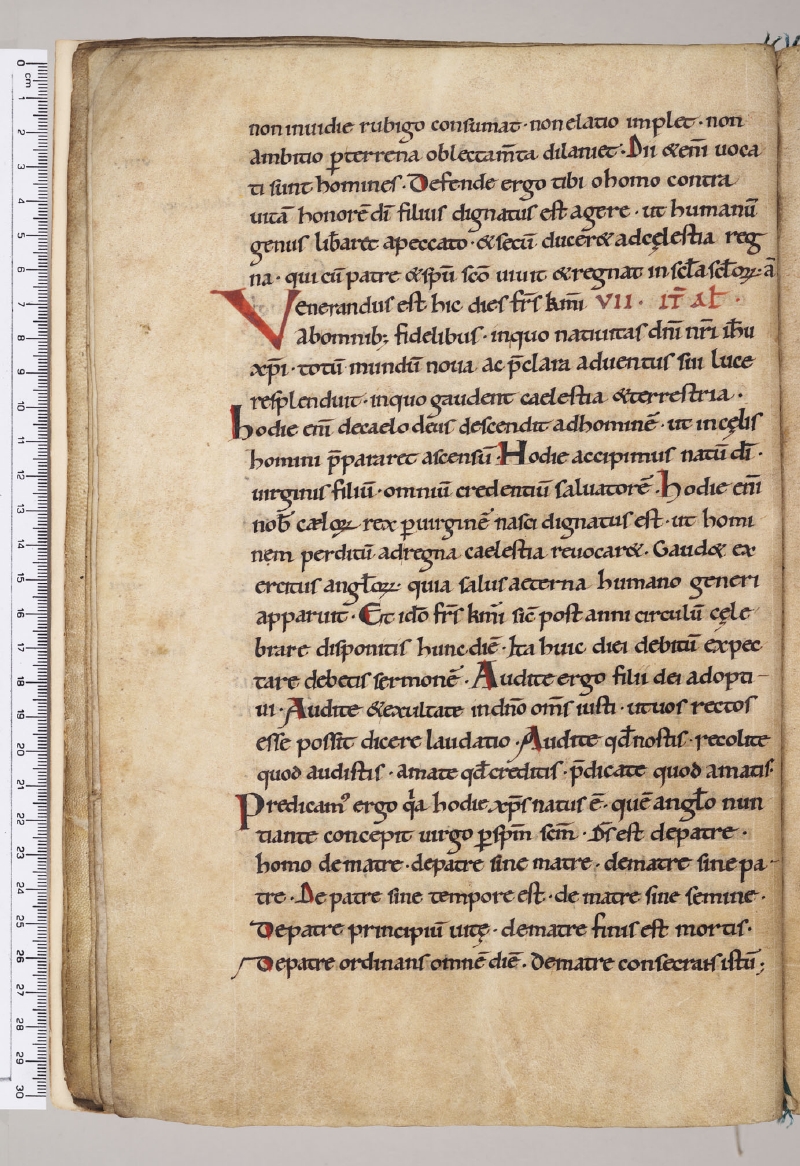 non inuidie rubigo consumat · non elatio implet · non
ambitio ꝑterrena oblectam̄ta dilaniet · Dii &eni᷒ uoca
ti sunt homines · Defende ergo tibi o homo contra
uitā honorē dī filius dignatus est agere · ut humanū
genus lib̄aret apeccato · & secū ducer& adcęlestia reg
na · qui cū patre & sp̄u sc̄o uiuit & regnat in scl̄a scl̄oꝝ · ā
Venerandus est hic dies fr̄s km̄i VII · IT̄ AL̄ ·
ab omnib; fidelibus · inquo natiuitas dn̄i nr̄i ih̄u
xp̄i · totū mundū noua ac p̄clara aduentus sui luce
resplenduit · inquo gaudent caelestia & terrestria ·
hodie eni᷒ decaelo deus descendit adhominē · ut incęlis
homini p̄pararet ascensū · Hodie accipimus natū dī ·
uirginis filiū · omniū credentiū saluatorē · Hodie eni᷒
nob̄ cæloꝝ rex ꝑuirginē nasci dignatus est · ut homi
nem perditū adregna caelestia reuocar& · Gaud& ex
ercitus angl̄oꝝ · quia salus aeterna humano generi
apparuit · Et idō fr̄s km̄i sic̄ post anni circulū cęle
brare disponitis hunc diē · Ita huic diei debitū expec
tare debetis sermonē · Audite ergo filii dei adopti-
ui · Audite & exultate in dn̄o om̄s iusti · ut uos rectos
esse possit dicere laudatio · Audite qd̄ nostis · recolite
quod audistis · amate qd̄ creditis · p̄dicate quod amatis·
Predicam᷒ ergo q̄a hodie xp̄s natus ē · quē angl̄o nun
tiante concepit uirgo ꝑ sp̄m sc̄m · Ds̄ est depatre ·
homo dematre · depatre sine matre · dematre sine pa-
tre · De patre sine tempore est · de matre sine semine ·
Depatre principiū uitę · dematre finis est mortis·
Depatre ordinans omnē diē · Dematre consecrans istū;